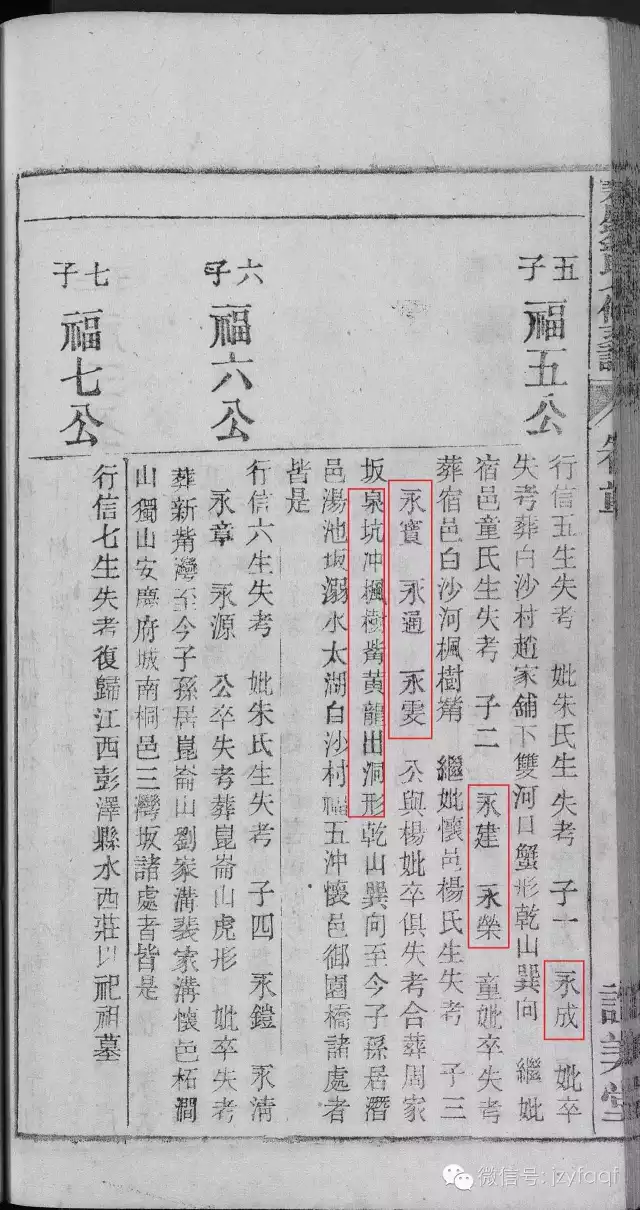 五子 福五公
行信五生失考 妣朱氏生失考 子一 永成 妣卒
失考葬白沙村趙家舖下雙河口蟹形乾山巽向 繼妣
宿邑童氏生失考 子二 永建 永榮 童妣卒失考
葬宿邑白沙河楓樹 繼妣懷邑楊氏生失考 子三
永寶 永通 永雯 公與楊妣卒俱失考合葬周家
坂泉坑冲楓樹嘴黃龍出洞形乾山巽向至今子孫居潛
邑湯池坂溺水太湖白沙村 五冲懷邑御園橋諸處者
皆是
六子 福六公
行信六生失考 妣朱氏生失考 子四 永鎧 永清
永章 永源 公卒失考葬崑崙山虎形 妣卒失考
葬新嘴灣至今子孫居崑崙山劉家溝裴家溝懷邑柘澗
山獨山安慶府城南桐邑三灣坂諸處者皆是
七子 福七公
行信七生失考復歸江西彭澤縣水西莊以祀祖墓
微信号: jzyfaqf